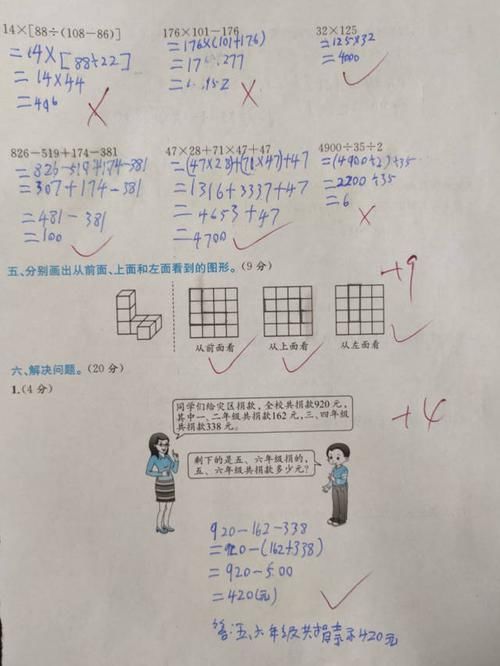 14×[88÷(108-86)] 176×101-176 32×125
=14×[88÷22] =176×(101+176) =125×32
=14×44 =4000
826-519+174-381 47×28+71×47+47 4900÷35÷2
=826-519+174-381 =(47×28)+(71×47)+47 =(4900÷2)÷35
=307+174-381 =1316+3337+47 =2200÷35
=481-381 =4653+47 =6
=100 =4700
五、分别画出从前面、上面和左面看到的图形。(9分) +9
从前面看 从上面看 从左面看
六、解决问题。(20分)
1.(4分) +4
同学们给灾区捐款，全校共捐款920元，
其中一、二年级共捐款162元，三、四年级
共捐款338元。
剩下的是五、六年级捐的，
五、六年级共捐款多少元？
920-162-338
=920-(162+338)
=920-500
=420(元)
答:五、六年级共捐 420元